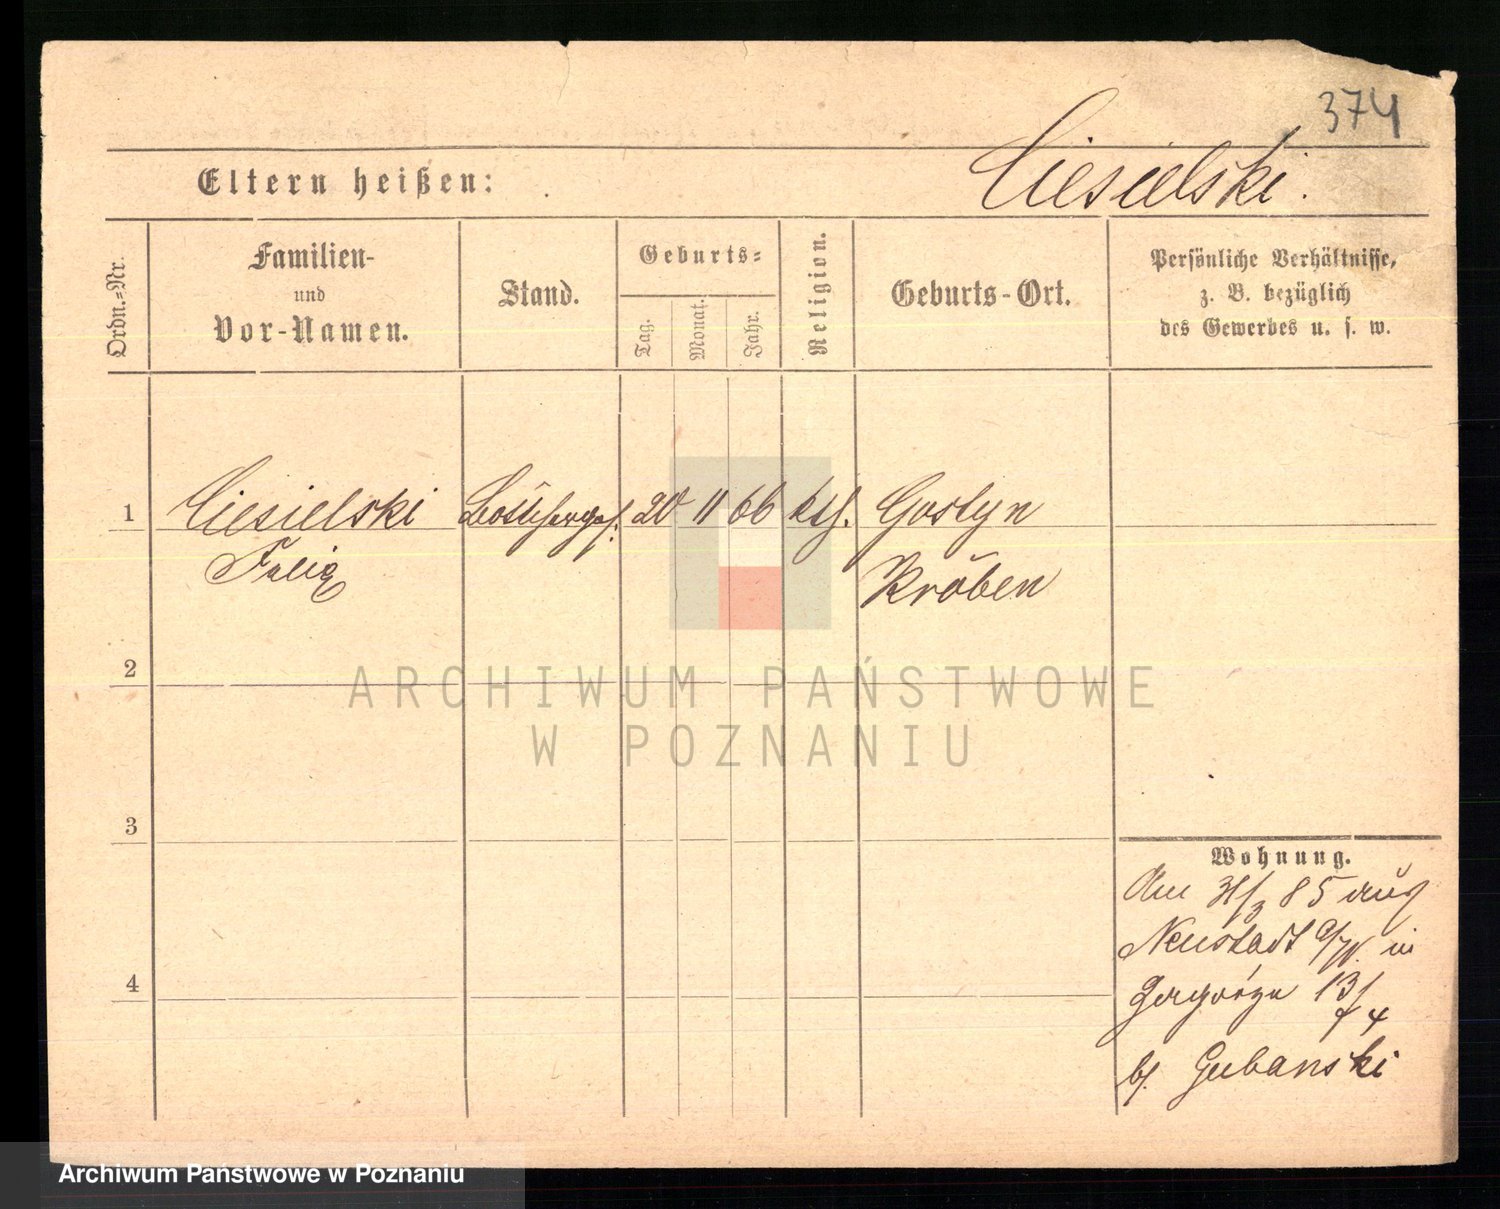 374
Eltern heißen:
Ciesielski.
Ordn.=Nr.
Familien-
und
Vor-Namen.
Stand.
Geburts=
Tag.
Monat.
Jahr.
Religion.
Geburts-Ort.
Persönliche Verhältnisse,
z. B. bezüglich
des Gewerbes u. s. w.
1
Ciesielski
Felix
Böttcherges.
20
11
66
kth.
Gostyn
Kröben
2
3
4
Wohnung.
Am 31/3 85 aus
Neustadt a/W. in
13/4
b. Gubanski
ARCHIWUM PAŃSTWOWE
W POZNANIU
Archiwum Państwowe w Poznaniu